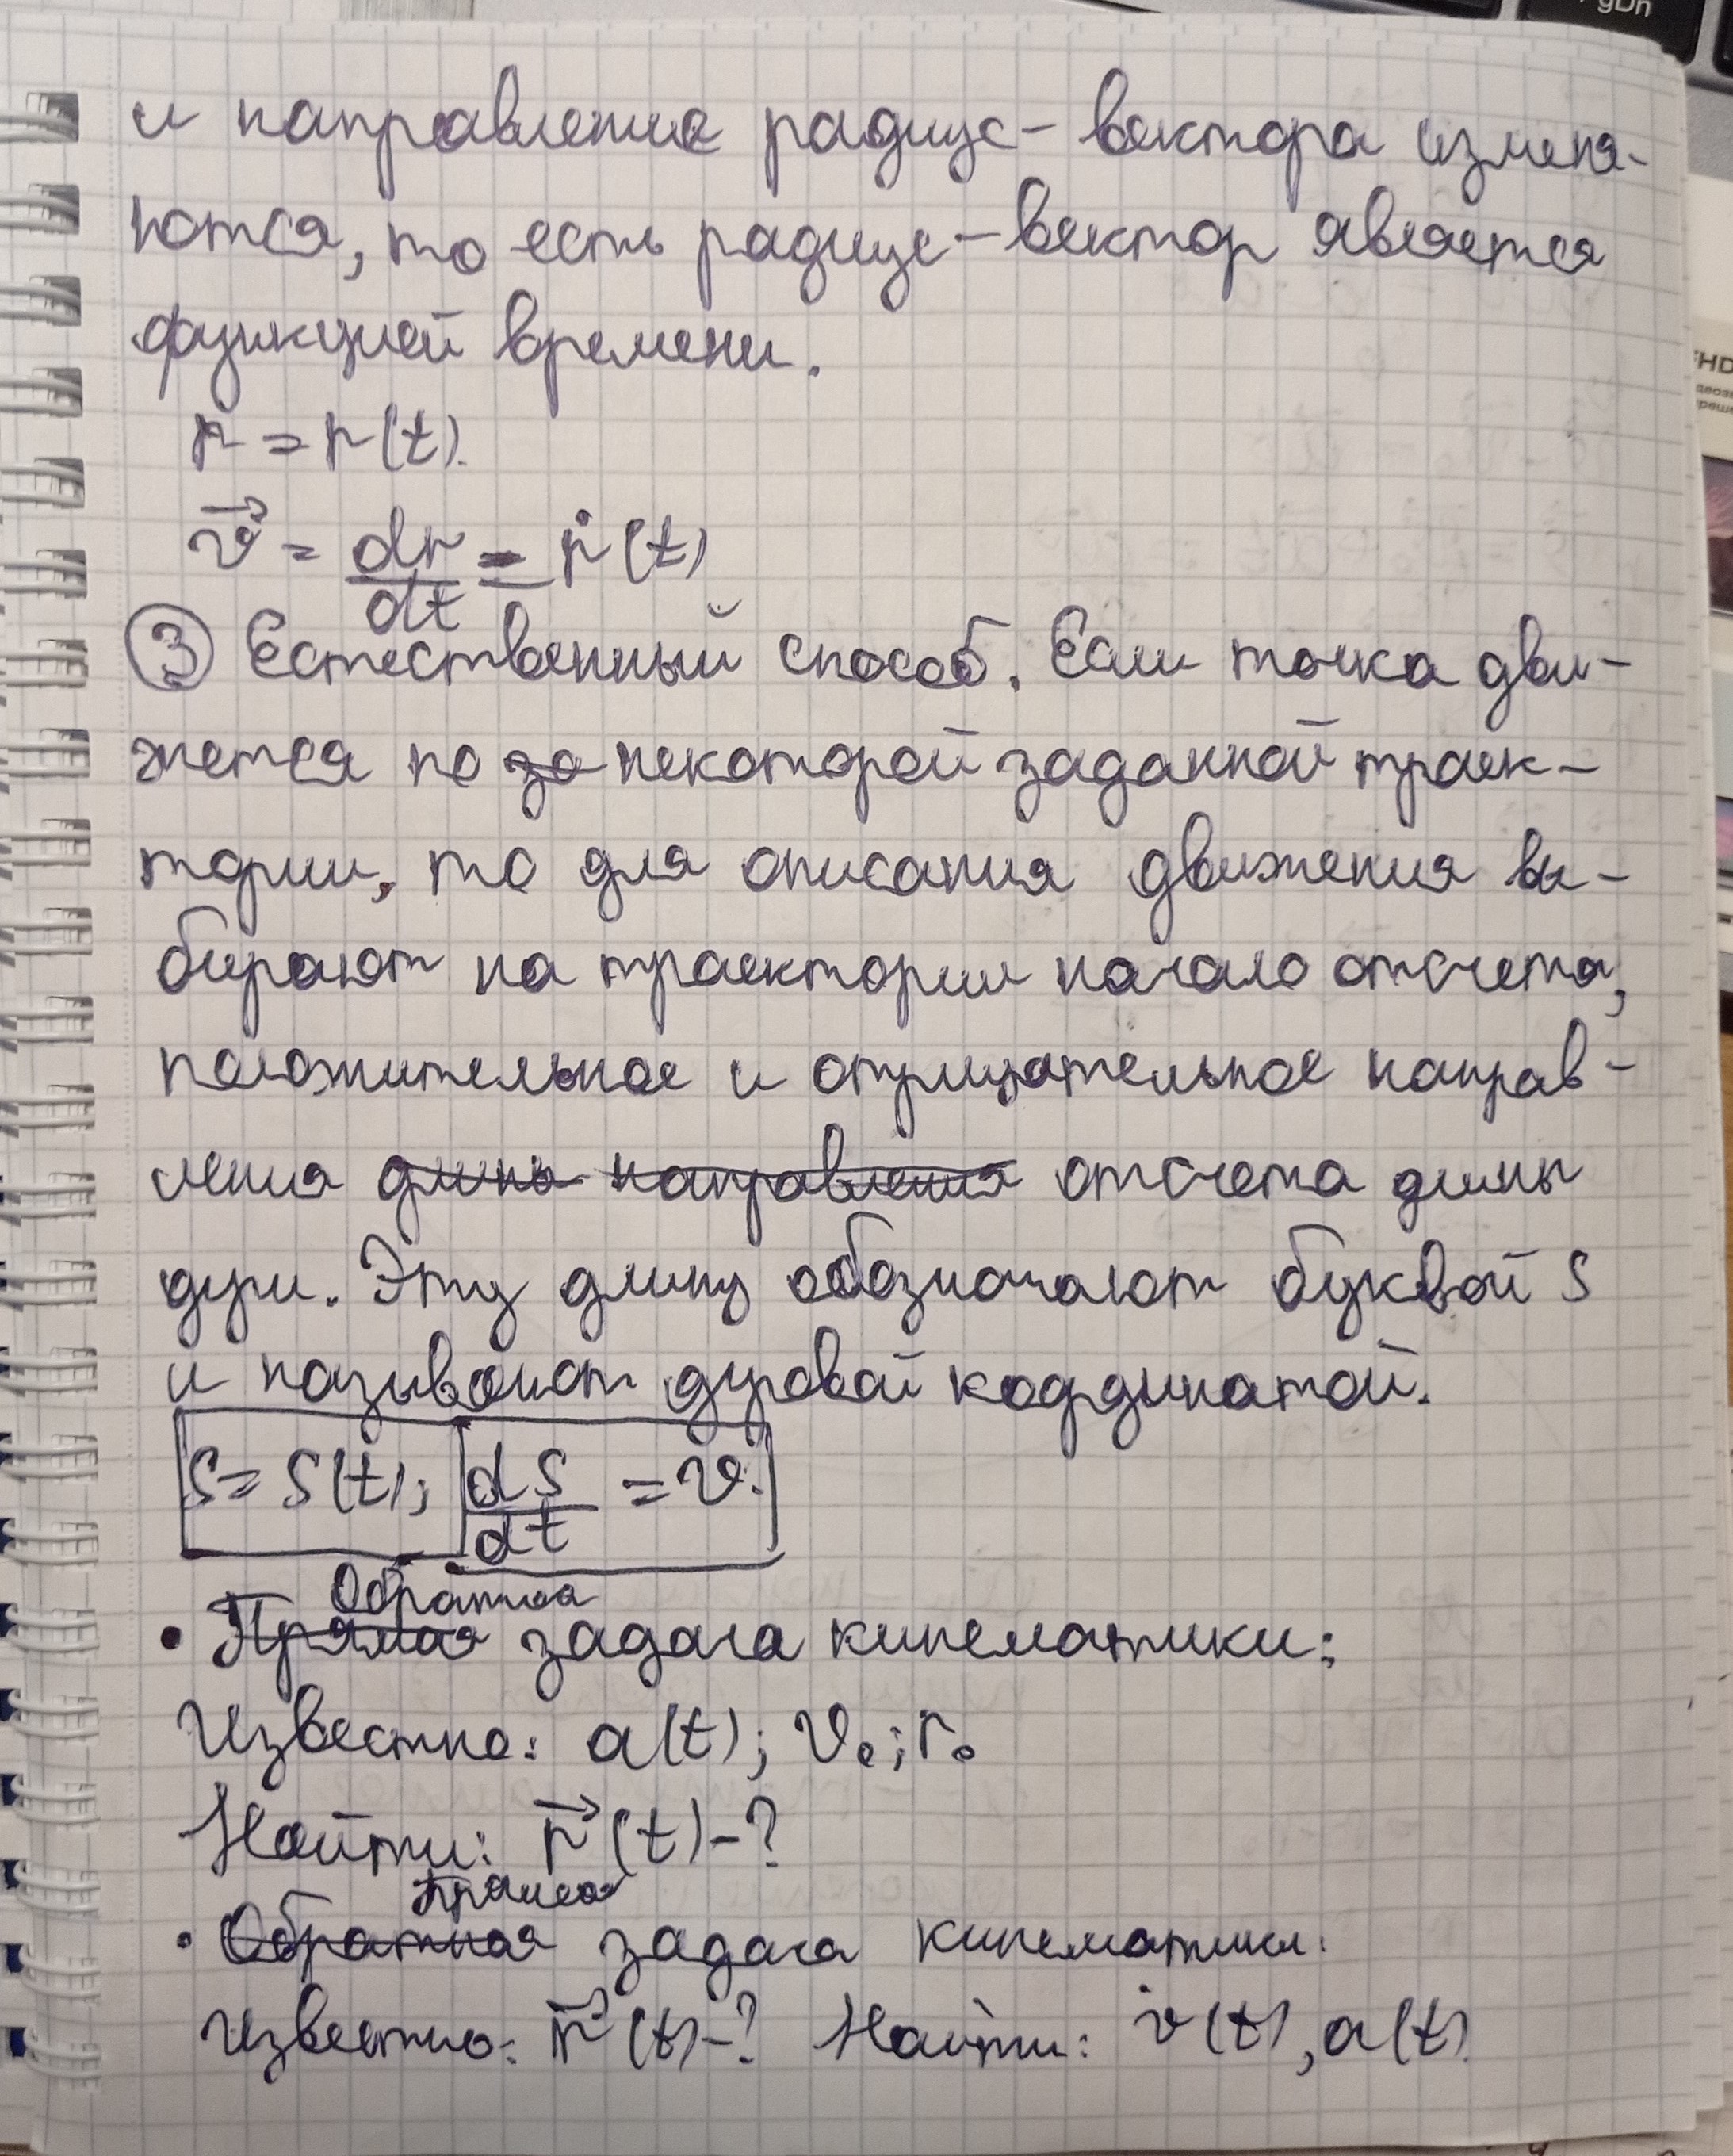 gDn
и направление радиус-вектора изменя-
ются, то есть радиус-вектор является
функцией времени.
r = r(t).
v⃗ = dr/dt = ṙ(t)
③ Естественный способ. Если точка дви-
жется по ~~за~~ некоторой заданной траек-
тории, то для описания движения вы-
бирают на траектории начало отсчета,
положительное и отрицательное направ-
ления ~~длины~~ ~~направления~~ отсчета длины
дуги. Эту длину обозначают буквой S
и называют дуговой координатой.
S = S(t); dS/dt = v.
Обратная
• ~~Прямая~~ задача кинематики:
Известно: a(t); v₀; r₀
Найти: r⃗(t)-?
Прямая
• ~~Обратная~~ задача кинематики:
Известно: r⃗(t)-? Найти: v(t), a(t)